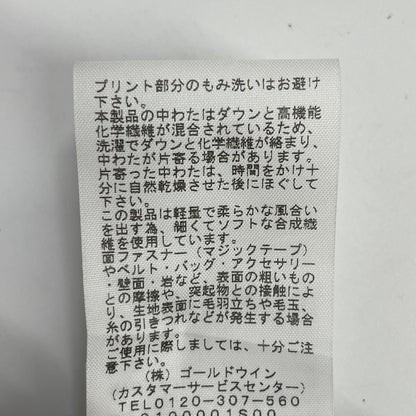 プリント部分のもみ洗いはお避け
下さい。
本製品の中わたはダウンと高機能
化学繊維が混合されているため、
洗濯でダウンと化学繊維が絡まり、
中わたが片寄る場合があります。
片寄った中わたは、時間をかけ十
分に自然乾燥させた後にほぐして
下さい。
この製品は軽量で柔らかな風合い
を出す為、細くてソフトな合成繊
維を使用しています。
面ファスナー（マジックテープ）
やベルト・バッグ・アクセサリー
・壁面・岩など、表面の粗いもの
との摩擦や、突起物との接触によ
り、生地表面に毛羽立ちや毛玉、
糸の引きつれなどが発生する場合
があります。
ご使用に際しましては、十分ご注
意下さい。
（株）ゴールドウイン
（カスタマーサービスセンター）
TEL0120-307-560